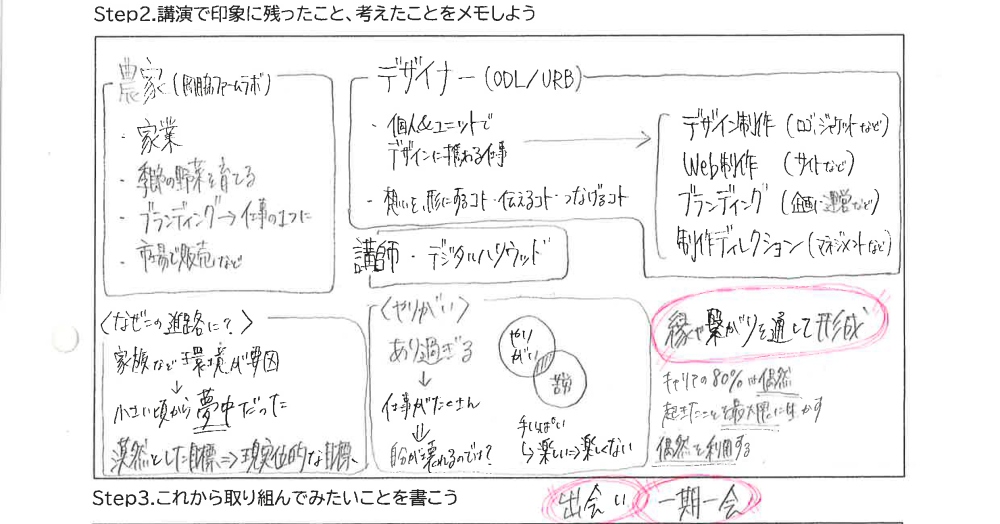 Step2.講演で印象に残ったこと、考えたことをメモしよう
農家(ファームラボ)
・家業
・季節の野菜を育てる
・ブランディング→仕事の1つに
・市場で販売など
デザイナー(ODL/URB)
・個人&ユニットで
デザインに携わる仕事
・想いを、形にするコト・伝えるコト・つなげるコト
→
デザイン制作(ロゴ、ジャケットなど)
Web制作(サイトなど)
ブランディング(企画に運営など)
制作ディレクション(マネジメントなど)
講師・デジタルハリウッド
〈なぜこの進路に?〉
家族など環境が要因
↓
小さい頃から夢中だった
漠然とした目標⇒現実的な目標、
〈やりがい〉
あり過ぎる
↓
仕事がたくさん
↓
自分が壊れるのでは?
やり
がい
苦労
手いっぱい
↳楽しい⇒楽しくない
縁や繋がりを通して形成
キャリアの80%は偶然
起きたことを最大限に生かす
偶然を利用する
Step3.これから取り組んでみたいことを書こう
出会い 一期一会